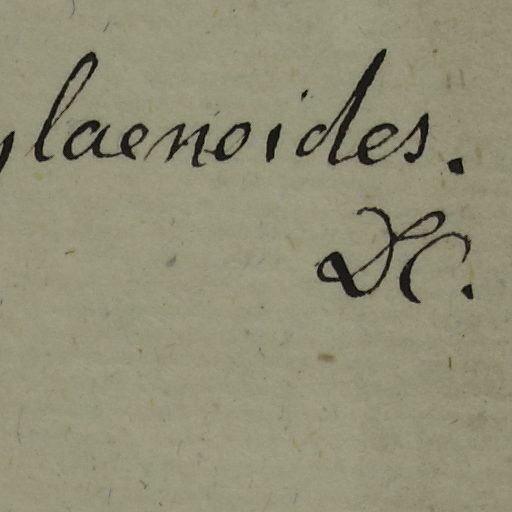 ylaenoides.
DC.